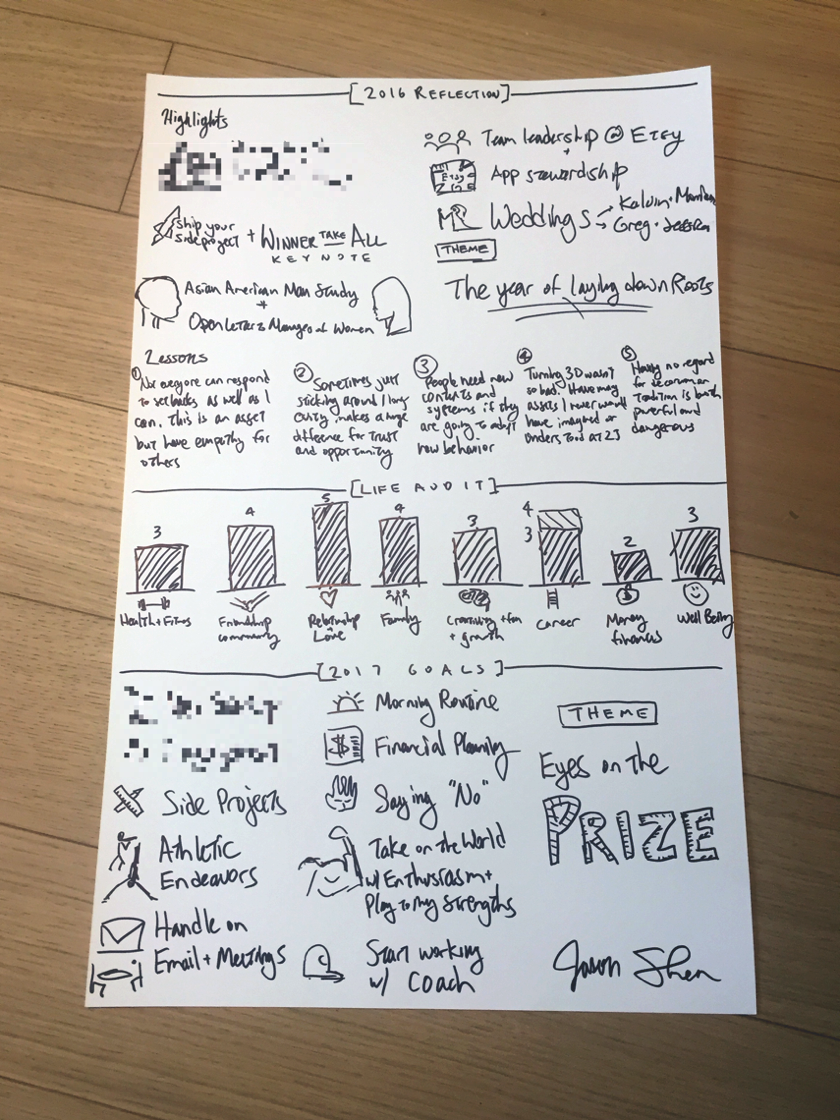 [2016 REFLECTION]
Highlights
Ship your
side project + WINNER TAKE ALL
KEYNOTE
Asian American Man Study
+
Open Letter 2 Managers of Women
Team leadership @ Etsy
+
Etsy
App stewardship
Weddings → Kalvin +
→ Greg + Jessica
THEME
The year of laying down Roots
Lessons
① Not everyone can respond
to setbacks as well as I
can. This is an asset
but have empathy for
others
② Sometimes just
sticking around / long
evity makes a huge
difference for trust
and opportunity
③ People need new
contexts and
systems if they
are going to adopt
new behavior
④ Turning 30 wasn't
so bad. Have many
assets I never would
have imagined or
understood at 23
⑤ Having no regard
for decorum or
Tradition is both
powerful and
dangerous
[LIFE AUDIT]
3 4 5 4 3 4 3 2 3
Health + Fitness
Friendship
community
Relationship
Love
Family
Creativity + fun
+ growth
Career
$
Money
finances
Well Being
[2017 GOALS]
Side Projects
Athletic
Endeavors
Handle on
Email + Meetings
Morning Routine
$
Financial Planning
Saying "No"
Take on the World
w/ Enthusiasm +
Play to My Strengths
Start working
w/ Coach
THEME
Eyes on the
PRIZE
Jason Shen